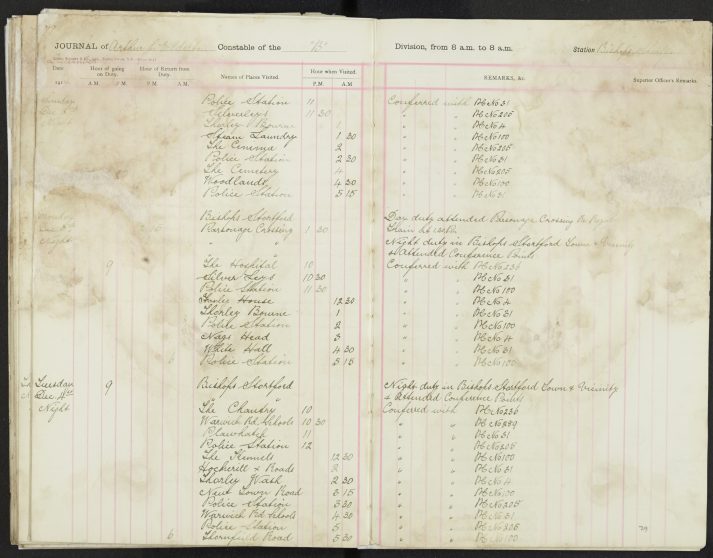 JOURNAL of Arthur Constable of the "B" Division, from 8 a.m. to 8 a.m. Station Bishops
Date Hour of going on Duty. Hour of Return from Duty. Names of Places Visited. Hour when Visited. REMARKS, &c. Superior Officer's Remarks.
A.M. P.M. P.M. A.M. P.M. A.M
Police Station 11 Conferred with PC No 31
11 30 " " PC No 205
Thorley Bourne 1 " " PC No 4
Steam Laundry 1 30 " " PC No 100
The Cinema 2 " " PC No 205
Police Station 2 30 " " PC No 31
The Cemetery 4 " " PC No 205
Woodlands 4 30 " " PC No 100
Police Station 5 15 " " PC No 31
Bishops Stortford Day duty attended Parsonage Crossing
Parsonage Crossing 1 30 Train
Night " " Night duty in Bishops Stortford Town & Vicinity
" & Attended Conference Points
9 The Hospital 10 Conferred with PC No 236
Silver Leys 10 30 " " PC No 31
Police Station 11 30 " " PC No 100
House 12 30 " " PC No 4
Thorley Bourne 1 " " PC No 31
Police Station 2 " " PC No 100
Nags Head 3 " " PC No 4
White Hall 4 30 " " PC No 31
6 Police Station 5 15 " " PC No 100
Tuesday 9 Bishops Stortford Night duty in Bishops Stortford Town & Vicinity
Dec 4th " & Attended Conference Points
Night The Chantry 10 Conferred with PC No 236
Warwick Rd Schools 10 30 " " PC No 289
Plawhatch 11 " " PC No 31
Police Station 12 " " PC No 205
The Kennels 12 30 " " PC No 100
Hockerill + Roads 2 " " PC No 31
Thorley Wash 2 30 " " PC No 4
New Town Road 3 15 " " PC No 100
Police Station 3 30 " " PC No 205
Warwick Rd Schools 4 30 " " PC No 31
Police Station 5 " " PC No 205
6 Thornfield Road 5 30 " " PC No 100